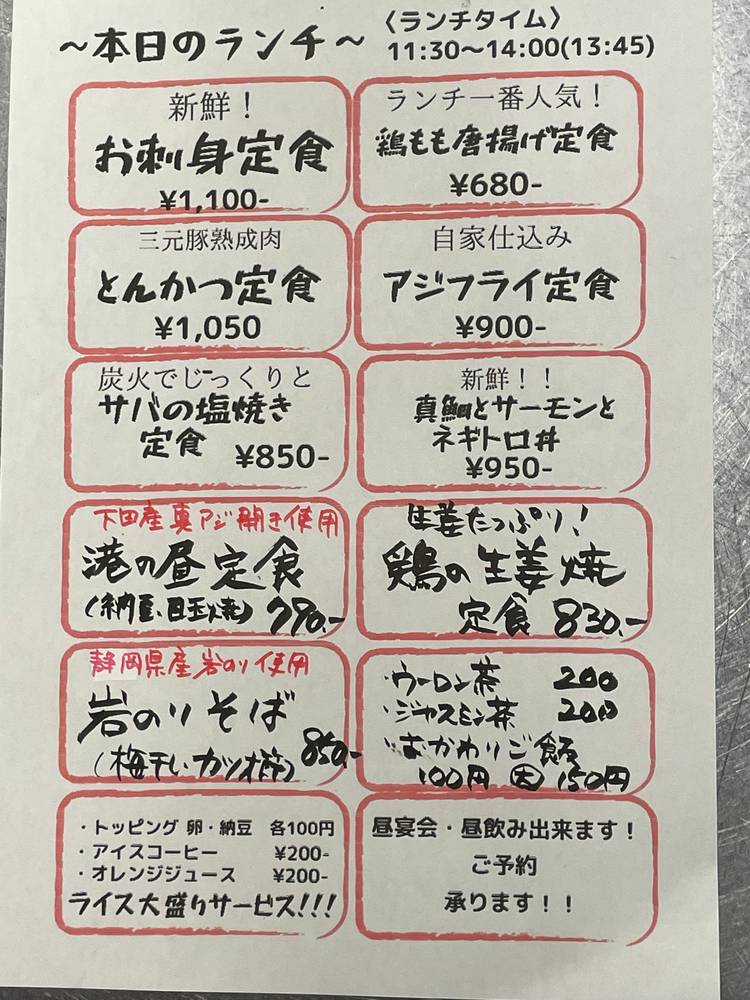 ～本日のランチ～
〈ランチタイム〉
11:30～14:00(13:45)
新鮮！
お刺身定食
¥1,100-
ランチ一番人気！
鶏もも唐揚げ定食
¥680-
三元豚熟成肉
とんかつ定食
¥1,050
自家仕込み
アジフライ定食
¥900-
炭火でじっくりと
サバの塩焼き
定食 ¥850-
新鮮！！
真鯛とサーモンと
ネギトロ丼
¥950-
下田産真アジ開き使用
港の昼定食
(納豆、目玉焼) 790.-
生姜たっぷり！
鶏の生姜焼
定食 830.-
静岡県産岩のり使用
岩のりそば
(梅干し、カツオ節) 850.-
・ウーロン茶 200
・ジャスミン茶 200
・おかわりご飯
100円 大 150円
・トッピング 卵・納豆 各100円
・アイスコーヒー ¥200-
・オレンジジュース ¥200-
ライス大盛りサービス!!!
昼宴会・昼飲み出来ます！
ご予約
承ります！！